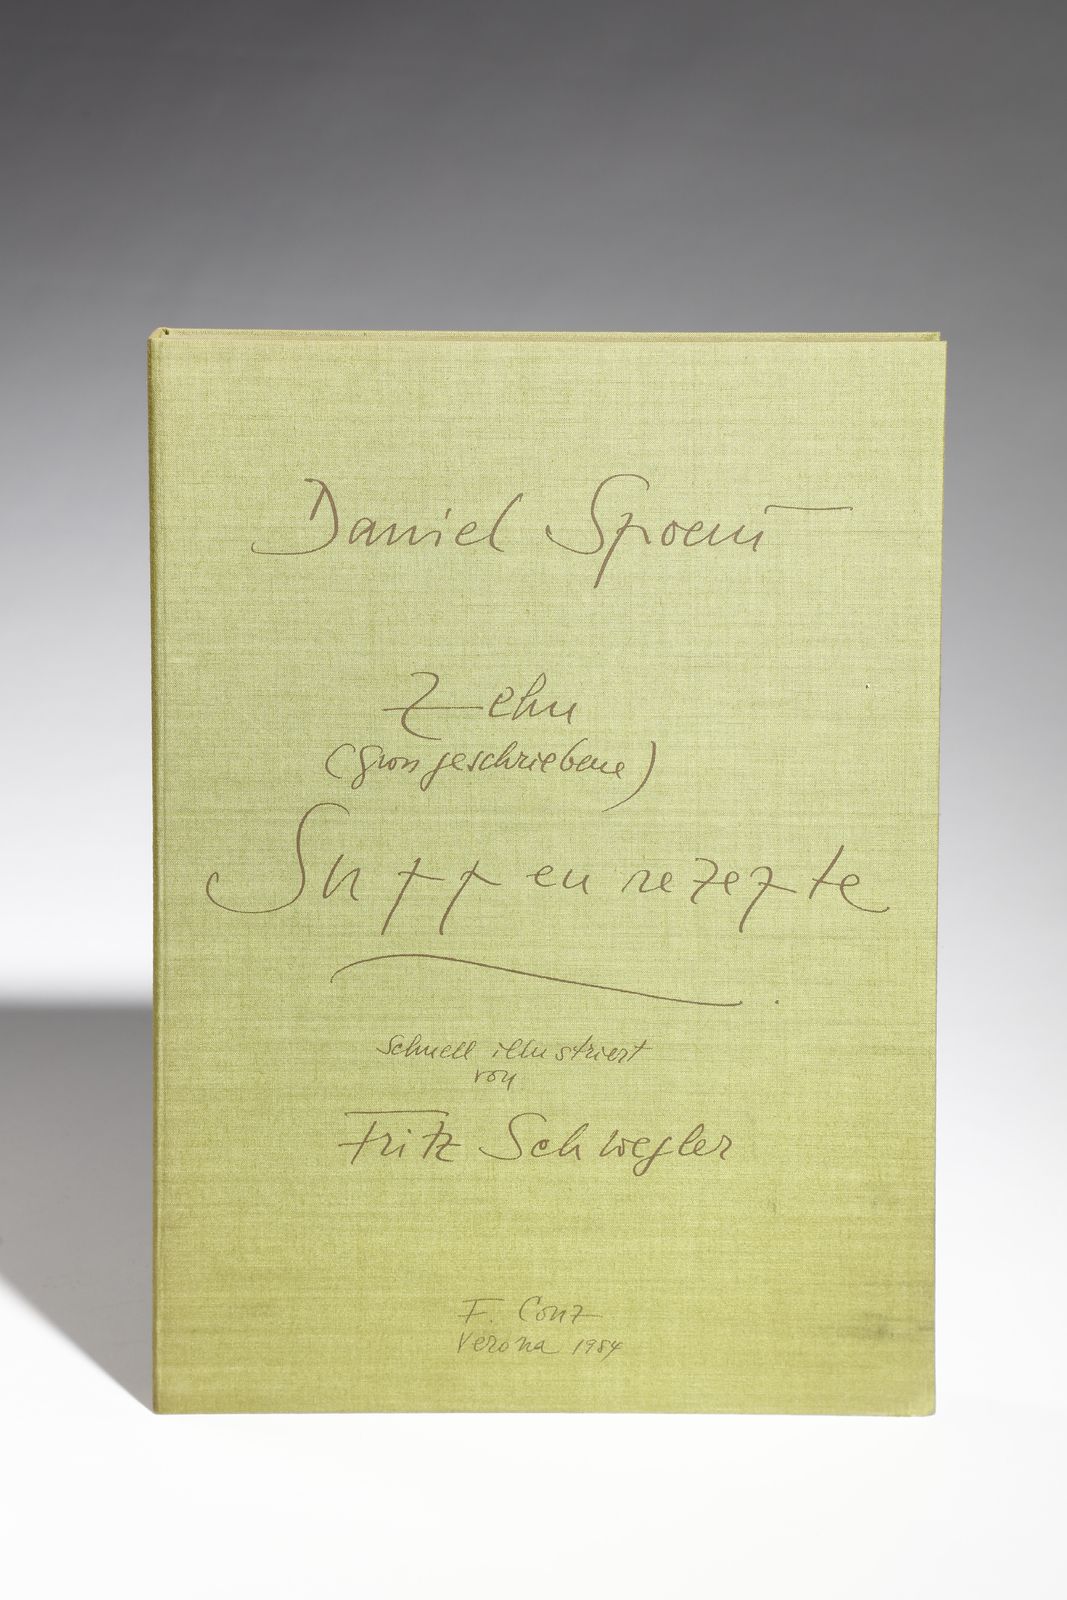 Daniel Spoerri
Zehn
(grossgeschriebene)
Suppenrezepte
schnell illustriert
von
Fritz Schwegler
F. Conz
Verona 1984